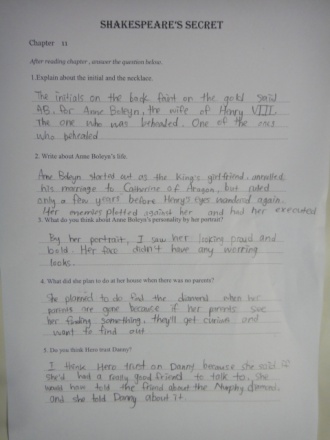 SHAKESPEARE'S SECRET
Chapter 11
After reading chapter , answer the question below.
1.Explain about the initial and the necklace.
The initials on the back faint on the gold said
AB, for Anne Boleyn, the wife of Henry VIII.
The one who was beheaded. One of the
who beheaded
2. Write about Anne Boleyn's life.
Anne Boleyn started out as the king's girlfriend. annulled
his marriage to Catherine of Aragon, but ruled
only a few years before Henry's eyes wandered again.
Her enemies plotted against her and had her executed
3. What do you think about Anne Boleyn's personality by her portrait?
By her portrait, I saw her looking proud and
bold. Her face didn't have any
looks.
4. What did she plan to do at her house when there was no parents?
She planned to do find the diamond when her
parents are gone because if her parents see
her finding something, they'll get curious and
want to find out
5. Do you think Hero trust Danny?
I think Hero trust on Danny because she said if
she'd had a really good friend to talk to, she
would have told the friend about the Murphy diamond,
and she told Danny about it.